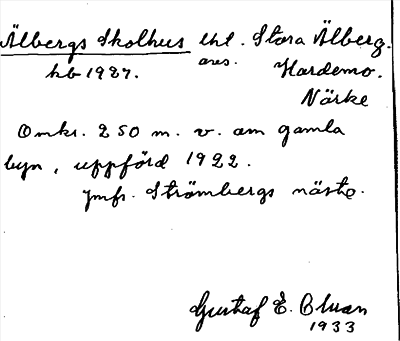 Älbergs Skolhus lht. Stora Älberg.
hb 1927. ars. Hardemo.
Närke
Omkr. 250 m. v. om gamla
byn, uppförd 1922.
Jmfr. Strömbergs näste.
Gustaf E. Bluan
1933